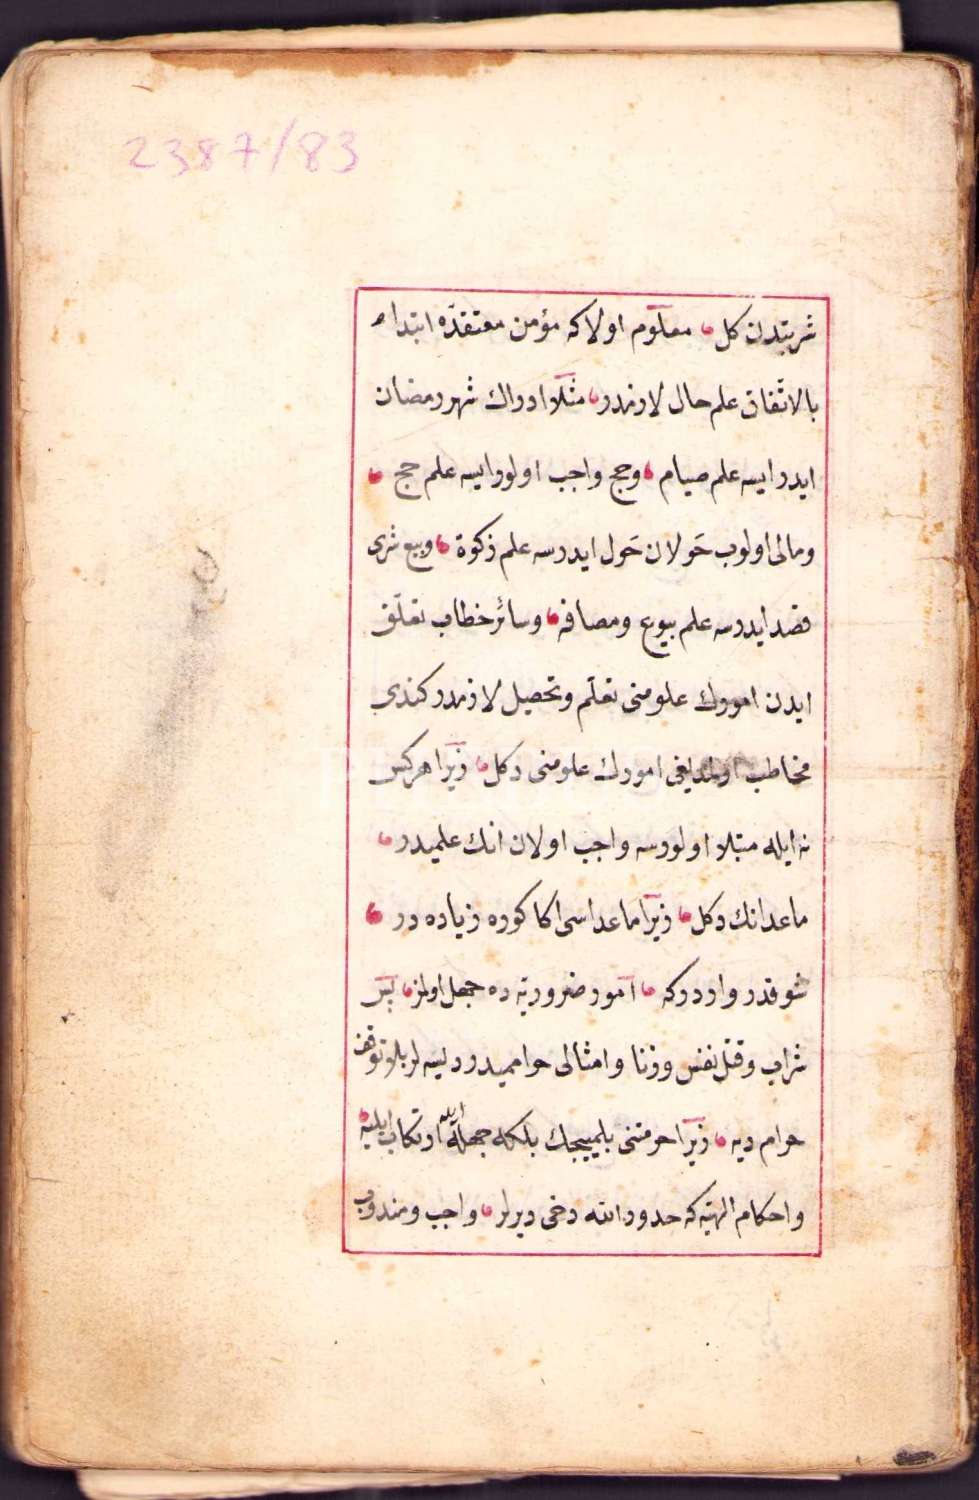 2387/83
شربتدن كل معلوم اولا كه مؤمن معتقده ابتداء
بالاتفاق علم حال لازمدر مثلا ادراك شهر رمضان
ايدر ايسه علم صيام وحج واجب اولور ايسه علم حج
ومالى اولوب حَولان حَول ايدرسه علم زكوة وبيع شرى
قصد ايدرسه علم بيوع ومصافه وسائر خطاب تعلّق
ايدن امورك علومنى تعلّم وتحصيل لازمدر كندى
مخاطب اولمديغى امورك علومنى دكل زيرا هركس
نه ايله مبتلا اولورسه واجب اولان انك علميدر
ماعدانك دكل زيرا ماعداسى اكا كوره زياده در
شو قدر وار در كه امور ضروريّه ده جهل اولمز پس
شراب وقتل نفس وزنا وامثالى حرامميدر ديسه لر بلا توقف
حرام ديه زيرا حرمتنى بلمييجك بلكه جهلله ارتكاب ايليه
واحكام الهيّه كه حدود الله دخى ديرلر واجب ومندوب